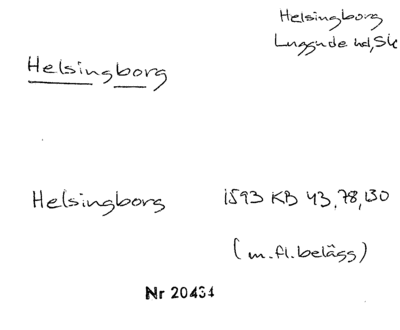 Helsingborg
Luggude hd, Sk
Helsingborg
Helsingborg 1593 KB 43, 78, 130
(m.fl. belägg)
Nr 20434